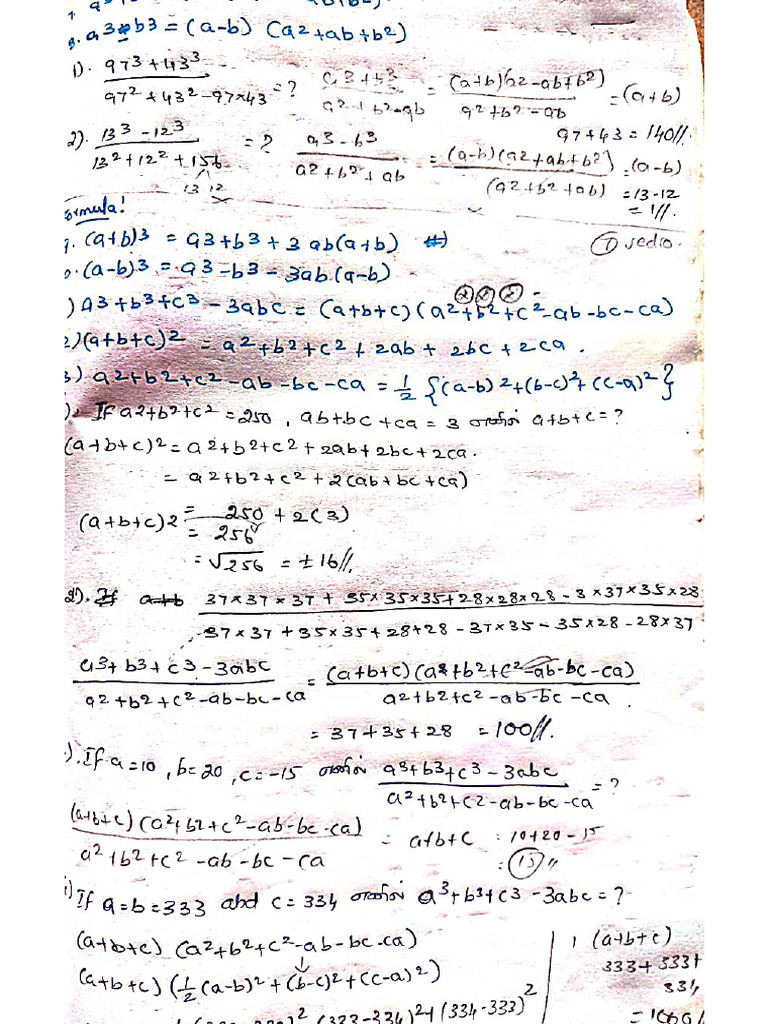 8. a3-b3 = (a-b) (a2+ab+b2)
1). 97³+43³ / 97²+43²-97×43 = ? a3+b3 / a2+b2-ab = (a+b)(a2-ab+b2) / a2+b2-ab = (a+b)
97+43 = 140//.
2). 13³-12³ / 13²+12²+156 = ? a3-b3 / a2+b2+ab = (a-b)(a2+ab+b2) / (a2+b2+ab) = (a-b)
13 12 = 13-12
= 1//.
Formula!
9. (a+b)3 = a3+b3+3ab(a+b)
0. (a-b)3 = a3-b3-3ab(a-b)
) a3+b3+c3-3abc = (a+b+c)(a2+b2+c2-ab-bc-ca)
2) (a+b+c)2 = a2+b2+c2+2ab+2bc+2ca.
3) a2+b2+c2-ab-bc-ca = 1/2 {(a-b)2+(b-c)2+(c-a)2}
). If a2+b2+c2 = 250, ab+bc+ca = 3 எனில் a+b+c = ?
(a+b+c)2 = a2+b2+c2+2ab+2bc+2ca.
= a2+b2+c2+2(ab+bc+ca)
(a+b+c)2 = 250+2(3)
= 256
= √256 = ±16//.
2). 37×37×37+35×35×35+28×28×28-3×37×35×28 / 37×37+35×35+28+28-37×35-35×28-28×37
a3+b3+c3-3abc / a2+b2+c2-ab-bc-ca = (a+b+c)(a2+b2+c2-ab-bc-ca) / a2+b2+c2-ab-bc-ca.
= 37+35+28 = 100//.
). If a=10, b=20, c=-15 எனில் a3+b3+c3-3abc / a2+b2+c2-ab-bc-ca = ?
(a+b+c)(a2+b2+c2-ab-bc-ca) / a2+b2+c2-ab-bc-ca = a+b+c : 10+20-15
: 15 //
) If a=b=333 and c=334 எனில் a3+b3+c3-3abc = ?
(a+b+c) (a2+b2+c2-ab-bc-ca)
(a+b+c) (1/2 (a-b)2+(b-c)2+(c-a)2)
(a+b+c)
333+333+
334
(333-334)2+(334-333)2